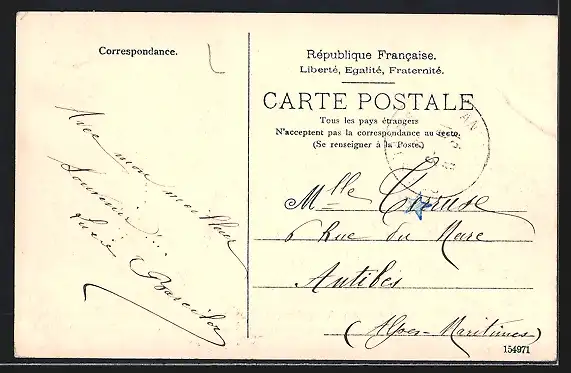 Correspondance.
Avec mon meilleur
souvenir...
République Française.
Liberté, Egalité, Fraternité.
CARTE POSTALE
Tous les pays étrangers
N'acceptent pas la correspondance au recto.
(Se renseigner à la Poste.)
Mlle
6 Rue du Mare
Antibes
(Alpes-Maritimes)
154971